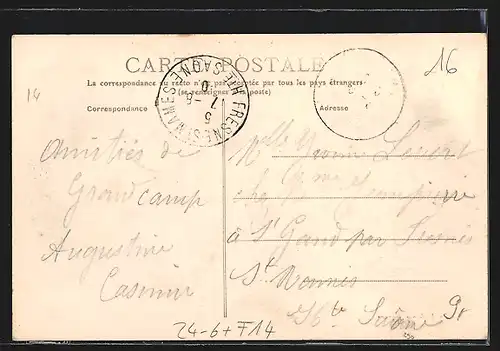 CARTE POSTALE
La correspondance au recto n'est pas acceptée par tous les pays étrangers
(se renseigner à la poste)
Correspondance
Adresse
FRESNE-ST-MAMES
HTE-SAONE
17-8
5
16
14
Amitiés de
Grandcamp
Augustine
Casimir
Melle Yvonne
chez Mme
à St Gand par Fresnes
St Mamès
Hte Saône
24-6+F14